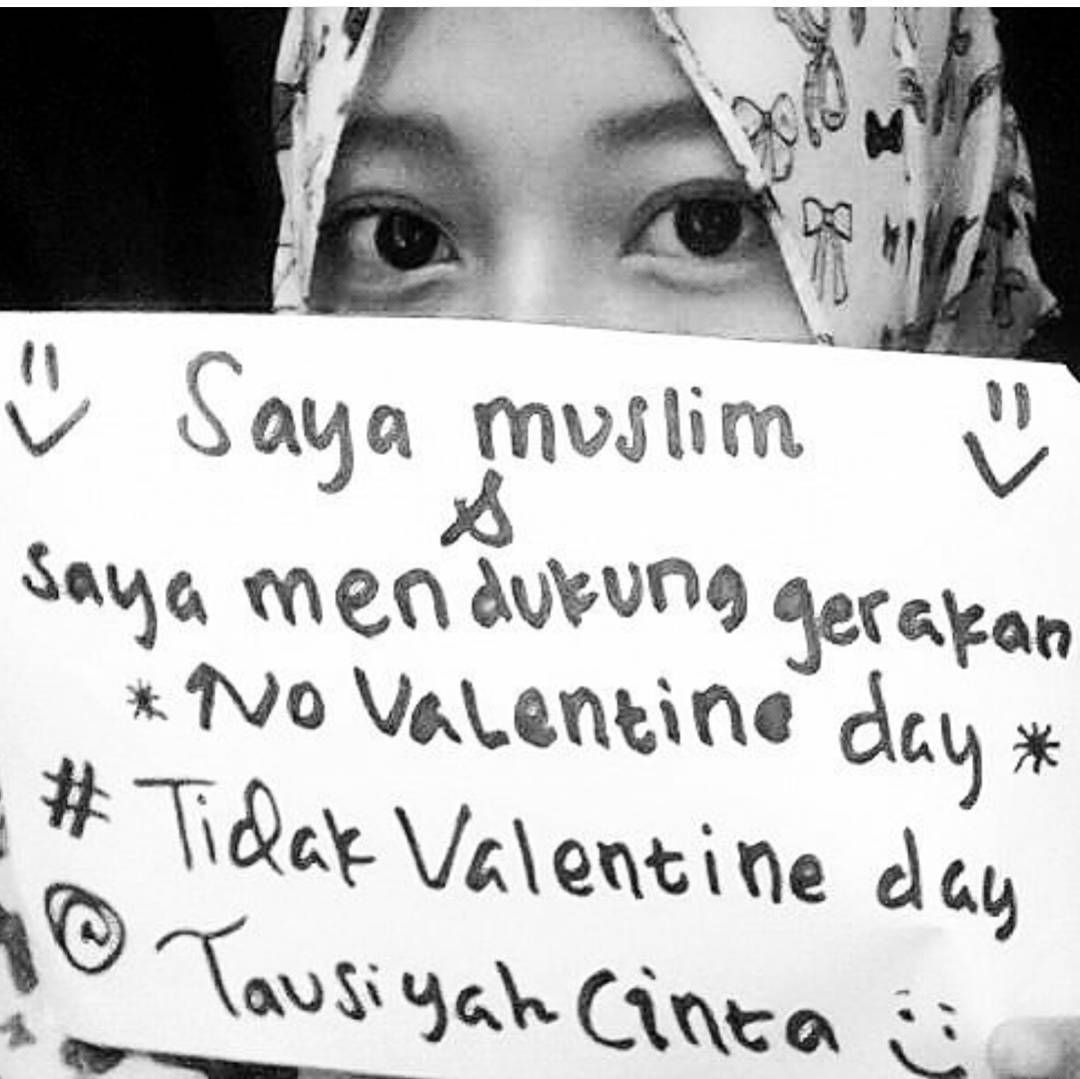 Saya muslim
&
saya mendukung gerakan
* No Valentine day *
# Tidak Valentine day
@ Tausiyah Cinta :)